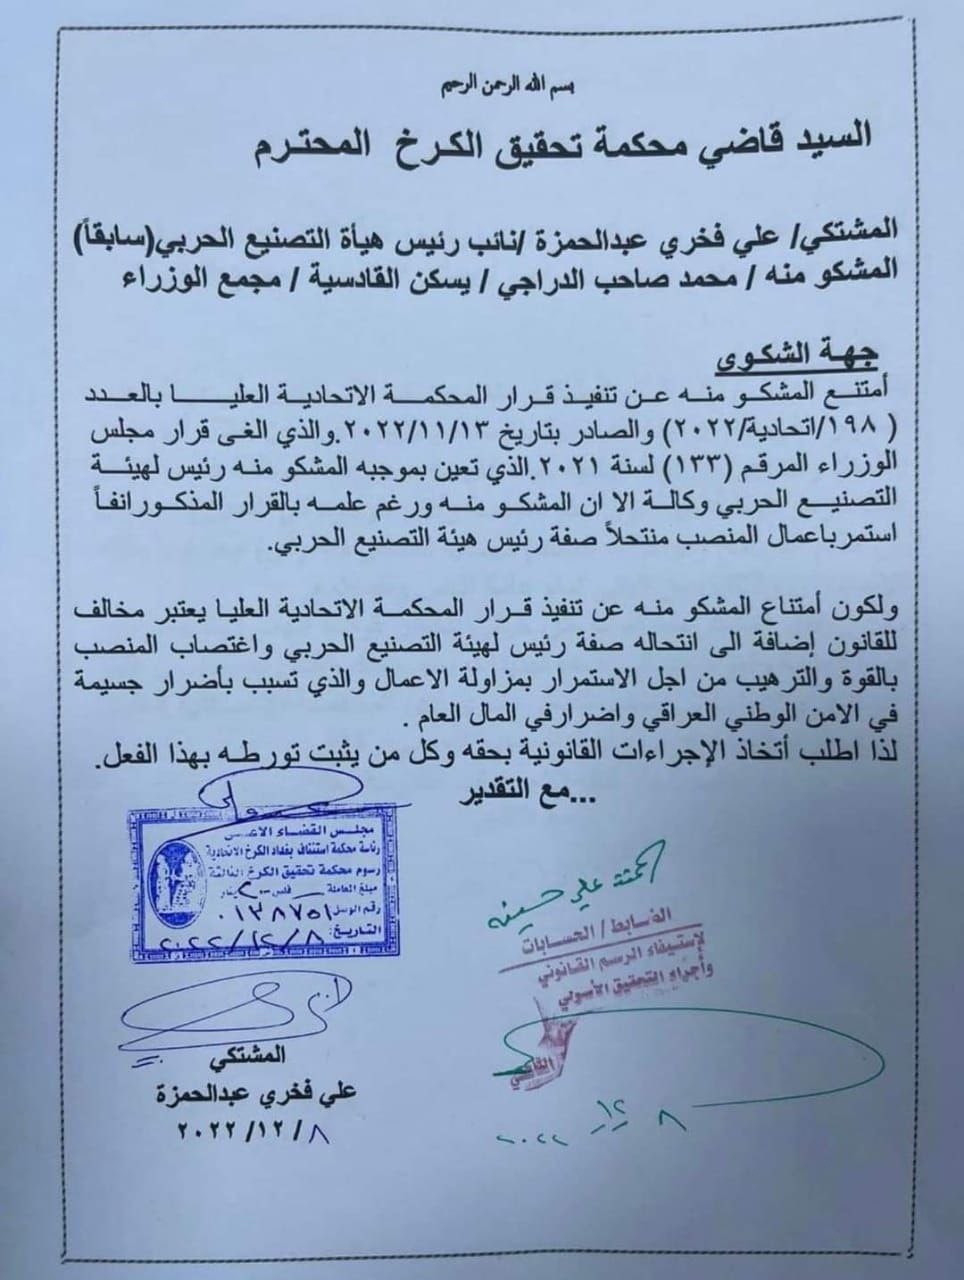 بسم الله الرحمن الرحيم
السيد قاضي محكمة تحقيق الكرخ المحترم
المشتكي/ علي فخري عبدالحمزة /نائب رئيس هيأة التصنيع الحربي(سابقاً)
المشكو منه / محمد صاحب الدراجي / يسكن القادسية / مجمع الوزراء
جهة الشكوى
أمتنع المشكو منه عن تنفيذ قرار المحكمة الاتحادية العليا بالعدد
( ١٩٨/اتحادية/٢٠٢٢) والصادر بتاريخ ٢٠٢٢/١١/١٣.والذي الغى قرار مجلس
الوزراء المرقم (١٣٣) لسنة ٢٠٢١.الذي تعين بموجبه المشكو منه رئيس لهيئة
التصنيع الحربي وكالة الا ان المشكو منه ورغم علمه بالقرار المذكورانفاً
استمرباعمال المنصب منتحلاً صفة رئيس هيئة التصنيع الحربي.
ولكون أمتناع المشكو منه عن تنفيذ قرار المحكمة الاتحادية العليا يعتبر مخالف
للقانون إضافة الى انتحاله صفة رئيس لهيئة التصنيع الحربي واغتصاب المنصب
بالقوة والترهيب من اجل الاستمرار بمزاولة الاعمال والذي تسبب بأضرار جسيمة
في الامن الوطني العراقي واضرارفي المال العام .
لذا اطلب أتخاذ الإجراءات القانونية بحقه وكل من يثبت تورطه بهذا الفعل.
...مع التقدير
مجلس القضاء الاعلى
رئاسة محكمة استئناف بغداد الكرخ الاتحادية
رسوم محكمة تحقيق الكرخ الثالثة
مبلغ المعاملة فلس ٢٠٠٠ دينار
رقم الوصل ٠١٣٨٧٥١
التاريخ: ٢٠٢٢/١٢/٨
علي حسينه
الضابط / الحسابات
لإستيفاء الرسم القانوني
وأجراء التحقيق الأصولي
القاضي
٨ ١٢ ٢٠٢٢
المشتكي
علي فخري عبدالحمزة
٢٠٢٢/١٢/٨